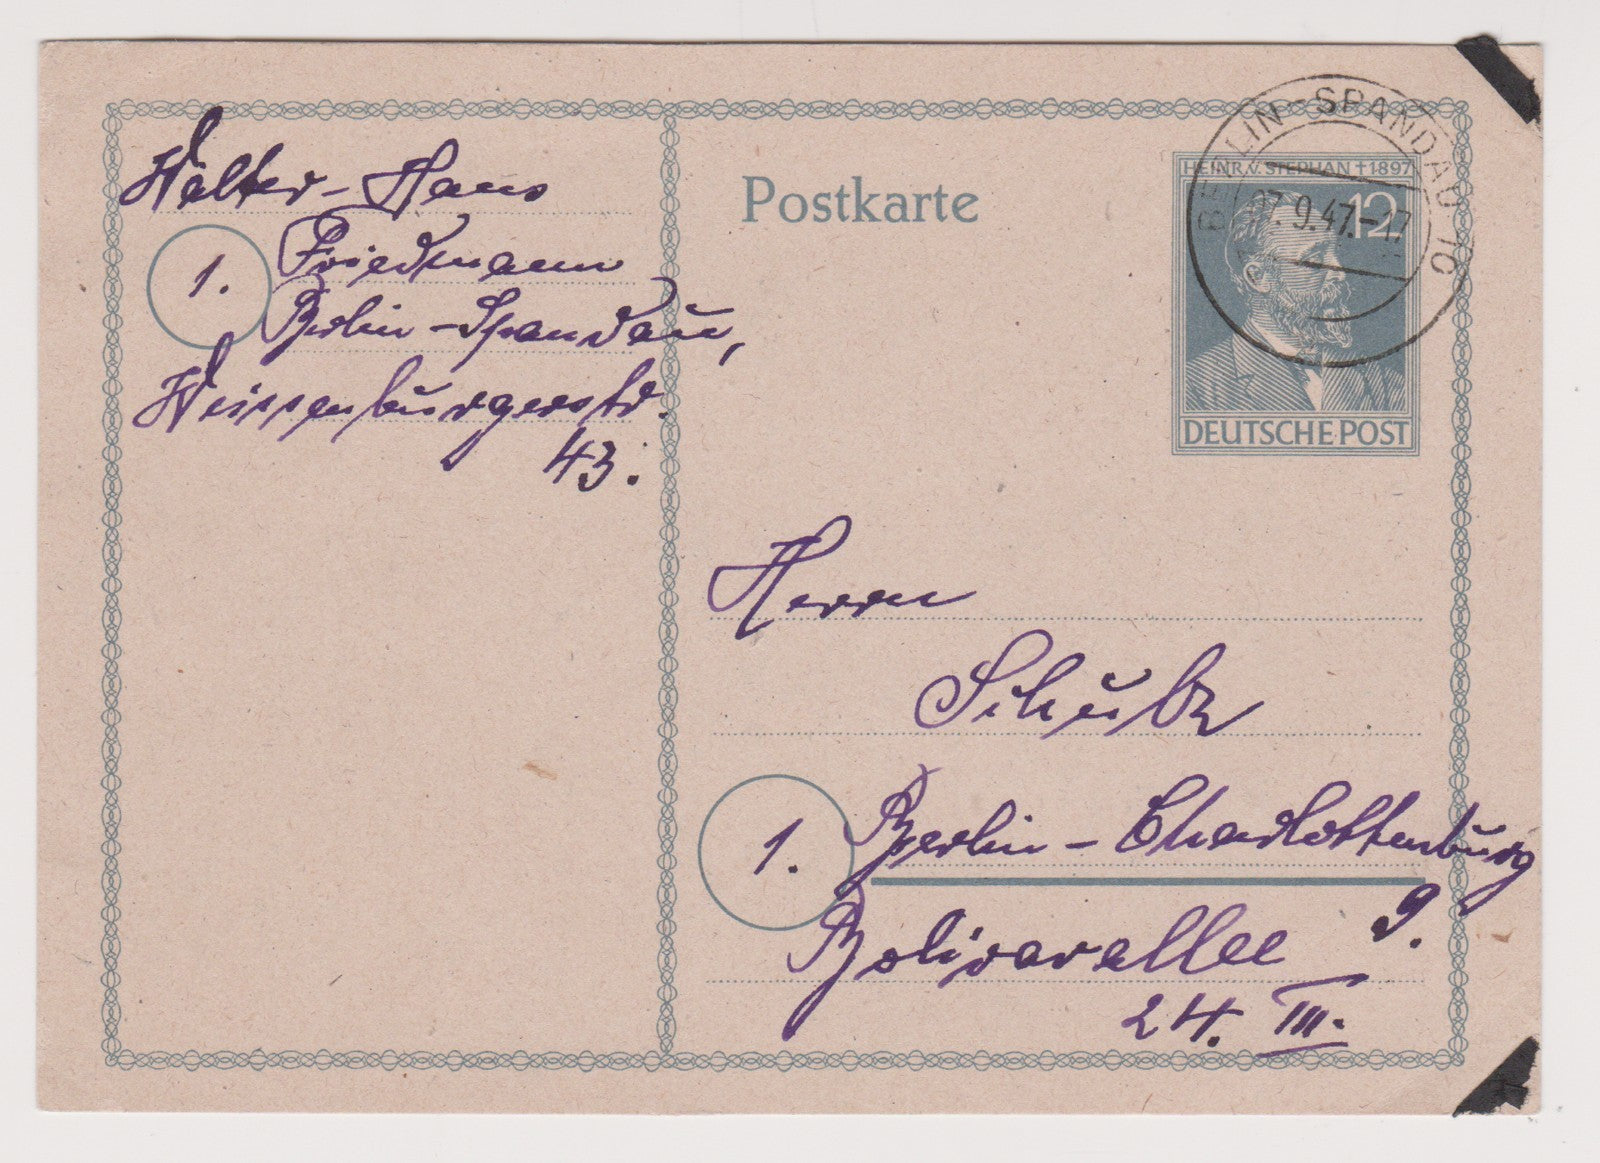 Walter-Hans
1. Friedmann
Berlin-Spandau,
Weissenburgerstr.
43.
Postkarte
HEINR.V. STEPHAN †1897
12
DEUTSCHE POST
BERLIN-SPANDAU 10
27.9.47.-17
Herrn
Schulz
1. Berlin-Charlottenburg
9.
Bolivarallee
24. III.